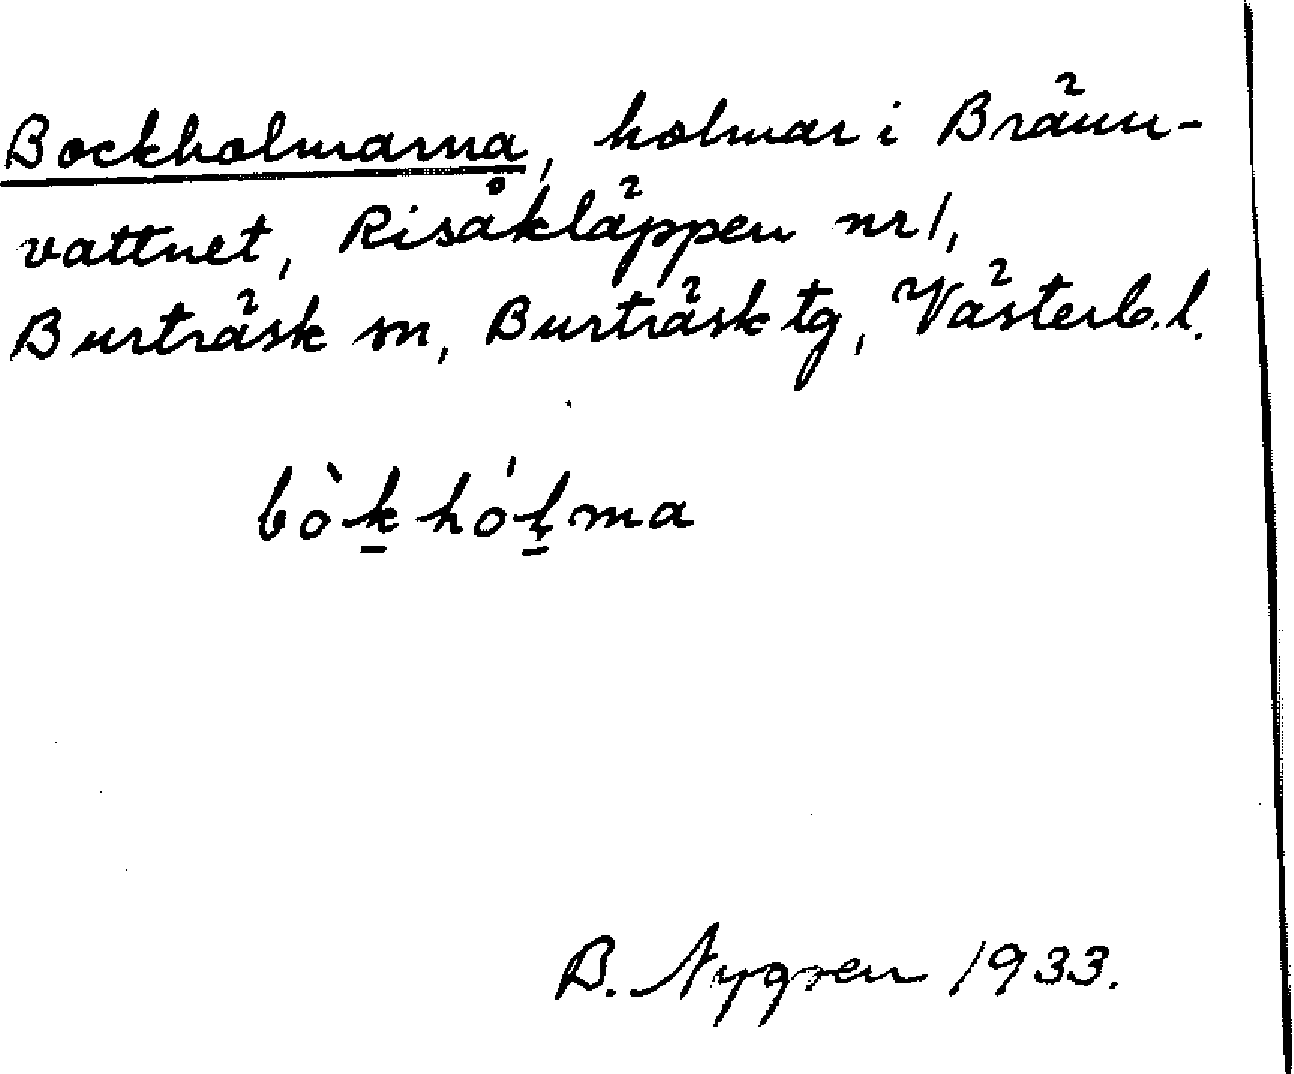 Bockholmarna, holmar i Bränn-
vattnet, Risåkläppen nr 1,
Burträsk sn, Burträsk tg, Västerb. l.
bòk̲ hól̲ma
B. Nygren 1933.